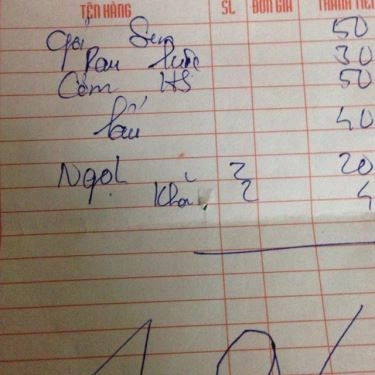 TÊN HÀNG SL ĐƠN GIÁ THÀNH TIỀN
Gỏi Sen 50
Rau luộc 30
Cơm HS 50
lẩu 40
Ngọt 2 20
Khăn 2 4